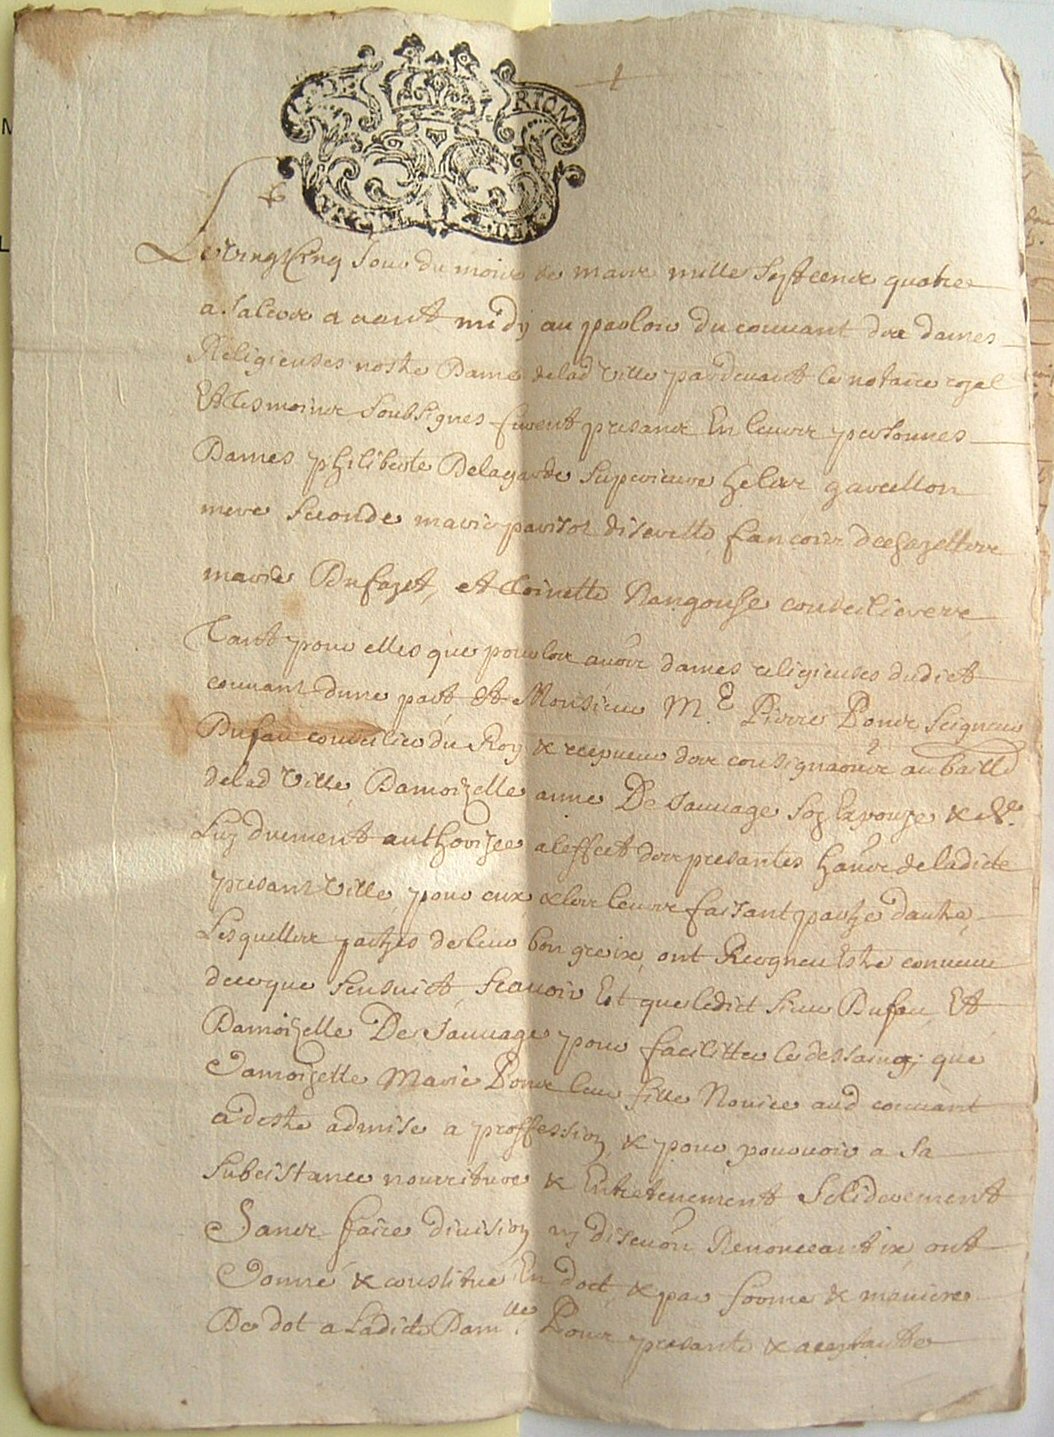 RIOM
Le vingt cinq Jour du mois de mars mille Sept cens quatre
a Salers avant midy au parloir du couvant des dames
Religieuses nostre Dame de lad ville pardevant le notaire royal
Et tesmoins Soubsignes furent presans En leurs personnes
Dames philiberte Delagarde Superieure
mere Seconde marie parisot
marie Dufayet, et Toinette Rangouse conseilieres
Tant pour elles que pour les autres dames religieuses dudict
couvant dune part Et Monsieur M.e Pierre Seigneur
Dufau conseilier du Roy & recepveur des consignaons au bailla
delad Ville, Damoizelle anne De Sauvage Son Espouze &
Luy duement authorizee a leffect des presantes hans de ladicte
presant Ville, pour eux & les leurs faisant partye dautre,
Lesquelles partyes de leur bon gre ont Recogneu Estre convenu
de ce que Sensuict, Scavoir Est que ledict Sieur Dufau Et
Damoizelle De Sauvage pour faciliter le dessaing que
Damoizelle Marie leur fille Novice aud couvant
a destre admise a proffession & pour pourvoir a Sa
Subcistance nourriture & Entretenement Soliderement
Sans faire division ny discuon Renonceant ont
Donné & constitué En dot & par forme & maniere
De dot a Ladicte Dam.lle presante & aceptante